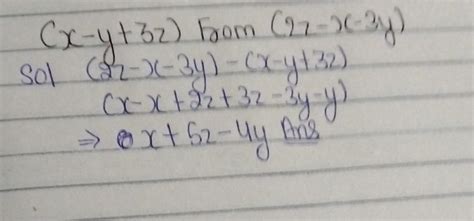 (x-y+3z) From (2z-x-3y)
Sol (2z-x-3y)-(x-y+3z)
(x-x+2z+3z-3y-y)
⇒ x+5z-4y Ans